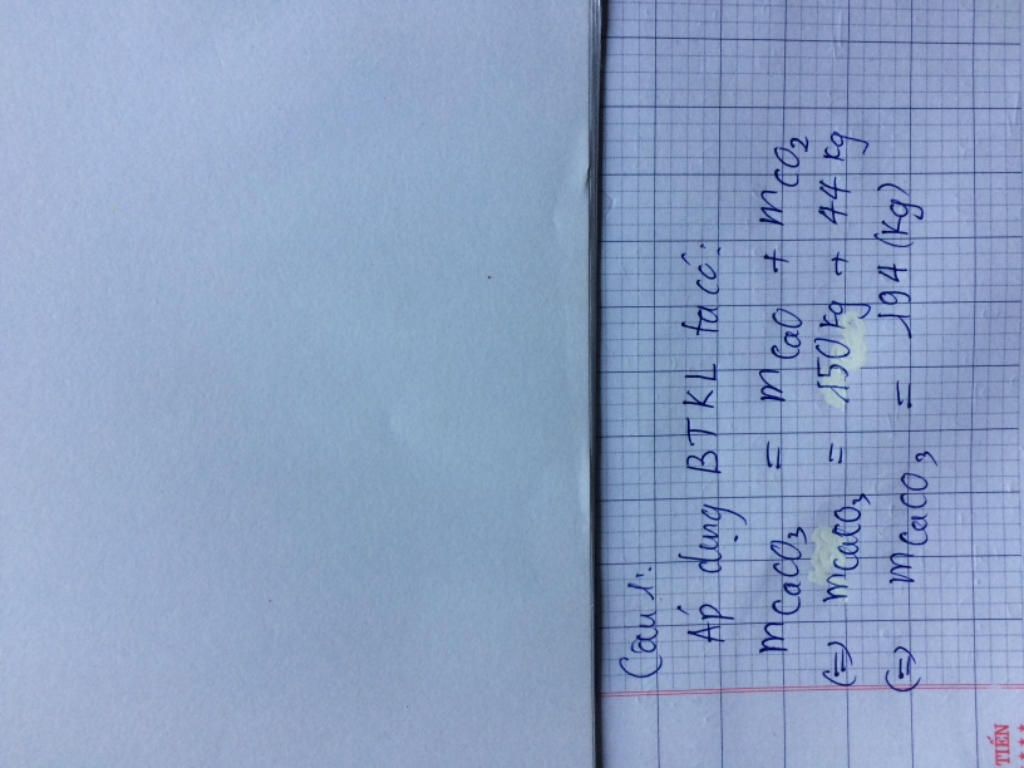 Câu 1:
Áp dụng BTKL ta có:
mCaCO3 = mCaO + mCO2
(=) mCaCO3 = 150 kg + 44 kg
(=) mCaCO3 = 194 (kg)
TIẾN